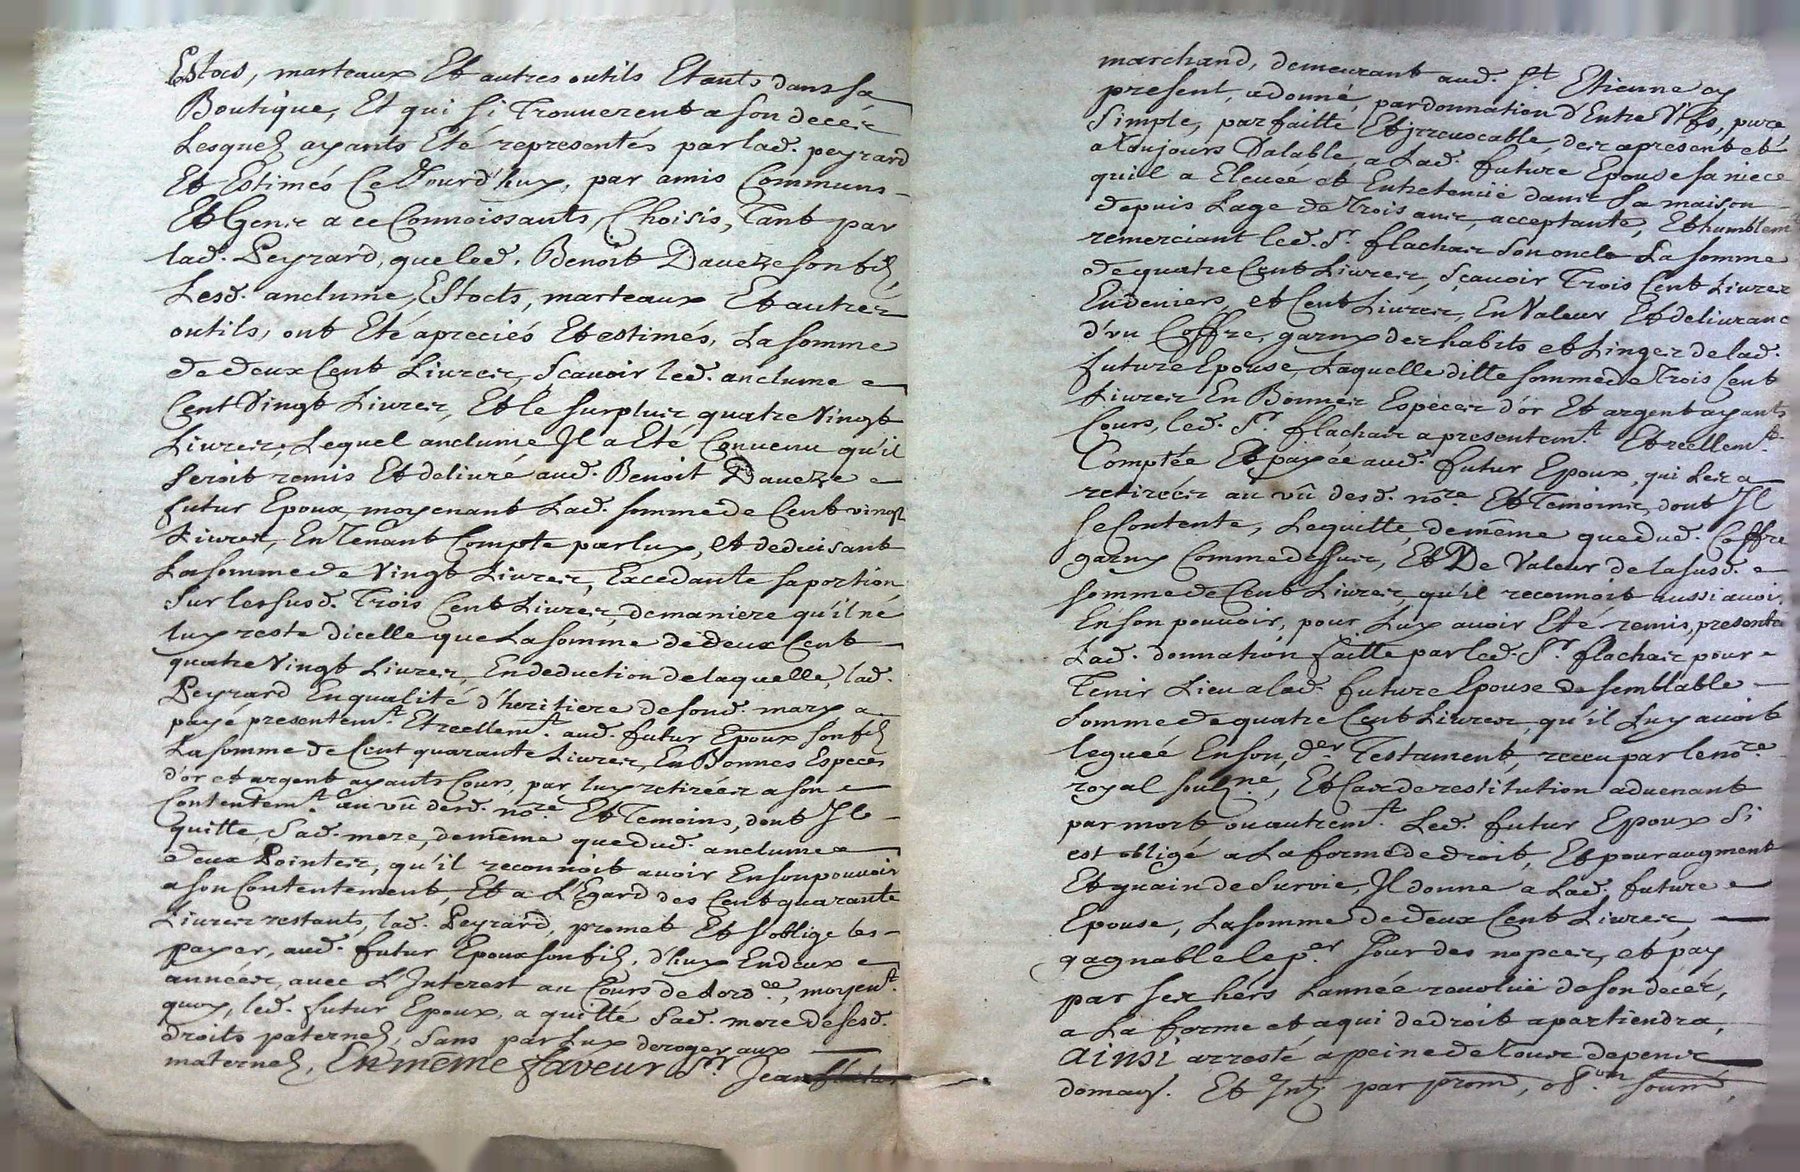 Estocs, marteaux Et autres outils Etants dans sa
Boutique, Et qui si Trouuerent a son decez
Lesquels ayants Eté representés par lad. peyrard
Et Estimés Ce Jourd'huy, par amis Communs
Et Gens a ce Connoissants, Choisis, Tant par
lad. Peyrard, que led. Benoit Daveze son fils,
Lesd. anclume, Estocts, marteaux Et autres
outils, ont Eté apreciés Et estimés, La somme
de deux Cent Livres, Scavoir led. anclume
Cent Vingt Livres, Et le surplus, quatre Vingt
Livres, Lequel anclume Il a Eté Convenu qu'il
seroit remis Et deliuré aud. Benoit Daveze
futur Epoux, moyenant Lad. somme de Cent vingt
Livres, En Tenant Compte par luy, et deduisant
La somme de Vingt Livres, Excedante sa portion
sur les susd. Trois Cent Livres, de maniere qu'il ne
luy reste dicelle que La somme de deux Cent
quatre Vingt Livres, En deduction de laquelle, lad.
Peyrard En qualité d'heritiere de sond. mary a
payé presentemt. Et reellemt. aud. futur Epoux son fils
La somme de Cent quarante Livres, En Bonnes Especes
d'or et argent ayants Cours, par luy retirées a son
Contentemt. au vû desd. nore. Et Temoins, dont Il
quitte, Sad. mere, de même que dud. anclume a
deux Pointes, qu'il reconnoit avoir En son pouvoir
a son Contentement, Et a L'Egard des Cent quarante
Livres restants, lad. Peyrard, promet Et s'oblige les
payer, aud. futur Epoux son fils, d'huy En deux
années, avec L'Interest au Cours de lordce., moyent.
quoy, led. futur Epoux, a quitté Sad. mere de sesd.
droits paternels, sans par Luy deroger aux
maternels, En même faveur Sr. Jean flachas
marchand, demeurant aud. St. Etienne cy
present, a donné, par donnation d'Entre Vifs, pure
Simple, parfaitte Et jrreuocable, des apresent et
a Toujours Valable, a Lad. future Epouse sa niece
quil a Eleueé et Entretenüe dans sa maison
depuis Lage de Trois ans, acceptante, Et humblemt
remerciant led. Sr. flachas son oncle La somme
de quatre Cent Livres, Scavoir Trois Cent Livres
En deniers, et Cent Livres, En Valeur Et deliuranc
d'vn Coffre, garny des habits et Linges de lad.
future Epouse, Laquelle ditte somme de Trois Cent
Livres En Bonnes Especes d'or Et argent ayants
Cours, led. Sr. flachas a presentemt. Et reellemt.
Comptée Et payée aud. futur Epoux, qui Les a
retirées au vû desd. nore. Et Temoins, dont Il
se Contente, Le quitte, de même que dud. Coffre
garny Comme dessus, Et De Valeur de la susd.
somme de Cent Livres, qu'il reconnoit aussi avoir
En son pouvoir, pour Luy avoir Eté remis, presente
Lad. donnation faitte par led. Sr. flachas pour
Tenir Lieu a lad. future Epouse de semblable
somme de quatre Cent Livres, qu'il Luy avoit
legueé En son der. Testament, receu par le nore.
royal soussne., Et Cas de restitution aduenant
par mort ou autremt. Led. futur Epoux Si
est obligé a La forme de droit, Et pour augment
Et guain de Survie, Il donne a Lad. future
Epouse, La somme de deux Cent Livres,
gagnable le per. Jour des nopces, et pay
par ses hers Lannée revolüe de son decés,
a La forme et a qui de droit apartiendra,
ainsi arresté a peine de tous depens
domas. Et Ints. par prom, obon. soum,